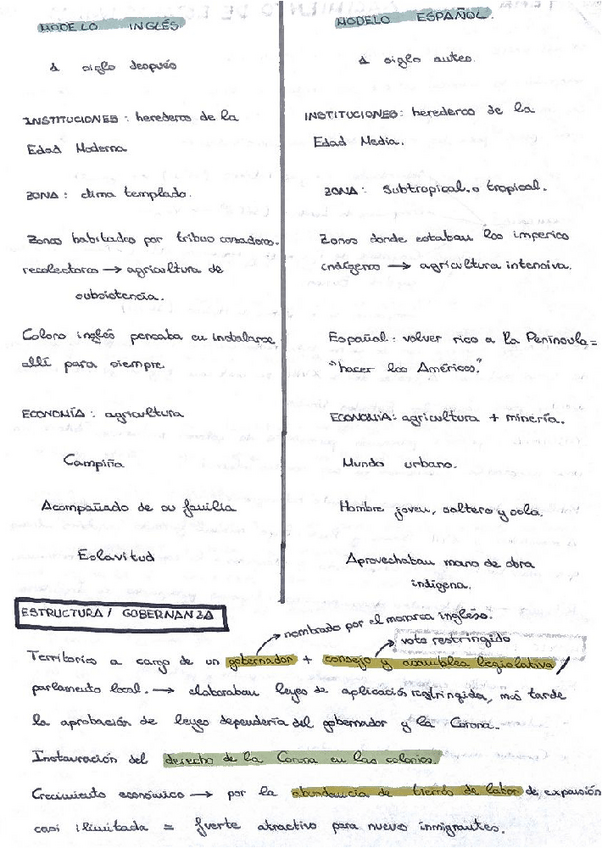 MODELO INGLÉS
1 siglo después
INSTITUCIONES: herederos de la
Edad Moderna
ZONA: clima templado.
Zonas habitadas por tribus cazadoras.
recolectoras → agricultura de
subsistencia.
Colono inglés pensaba en instalarse
allí para siempre.
ECONOMÍA: agricultura
Campiña
Acompañado de su familia
Eslavitud
MODELO ESPAÑOL.
1 siglo antes.
INSTITUCIONES: herederos de la
Edad Media.
ZONA: Subtropical o tropical.
Zonas donde estaban los imperios
indígenas → agricultura intensiva.
Español: volver rico a la Península =
"hacer las Américas."
ECONOMÍA: agricultura + minería.
Mundo urbano.
Hombre joven, soltero y solo.
Aprovechaban mano de obra
indígena.
ESTRUCTURA / GOBERNANZA
→ nombrado por el monarca inglés.
→ voto restringido
Territorios a cargo de un gobernador + consejo y asamblea legislativa /
parlamento local. → elaboraban leyes de aplicación restringida, más tarde
la aprobación de leyes dependería del gobernador y la Corona.
Instauración del derecho de la Corona en las colonias.
Crecimiento económico → por la abundancia de tierras de labor de expansión
casi ilimitada = fuerte atractivo para nuevos inmigrantes.